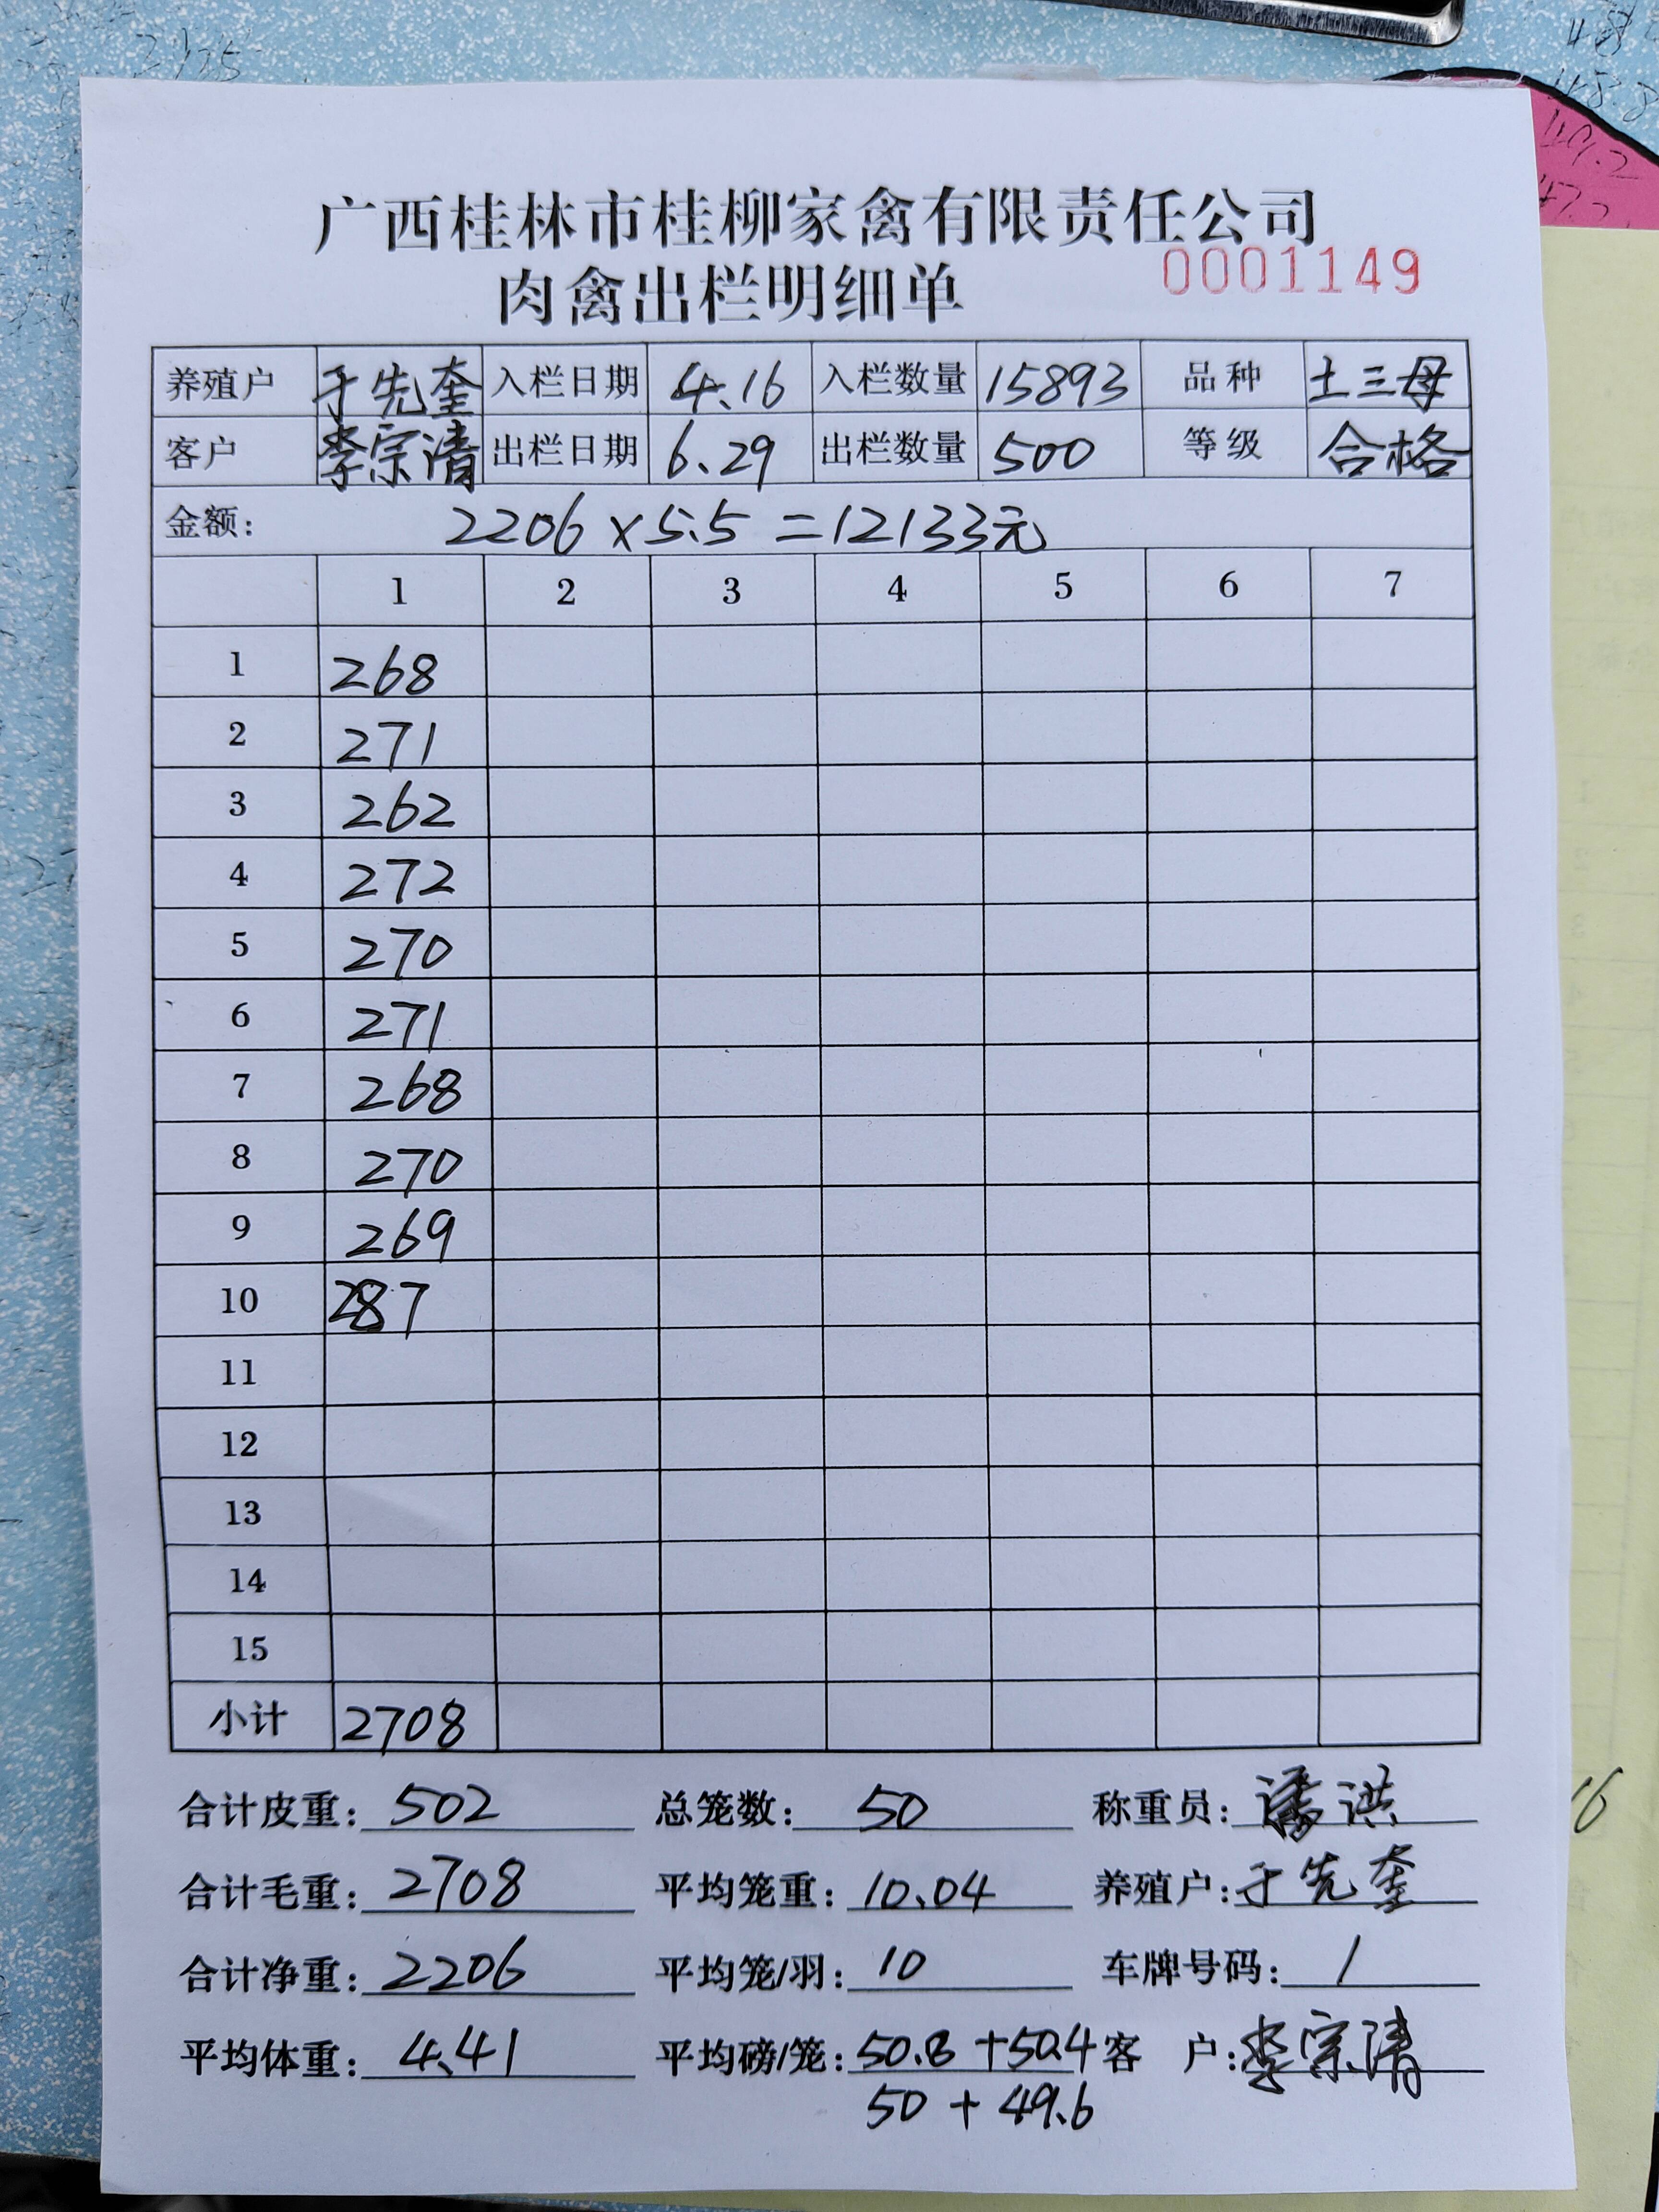 广西桂林市桂柳家禽有限责任公司
肉禽出栏明细单 0001149
养殖户 于先奎 入栏日期 4.16 入栏数量 15893 品种 土三母
客户 李宗清 出栏日期 6.29 出栏数量 500 等级 合格
金额: 2206×5.5=12133元
1 2 3 4 5 6 7
1 268
2 271
3 262
4 272
5 270
6 271
7 268
8 270
9 269
10 287
11
12
13
14
15
小计 2708
合计皮重: 502 总笼数: 50 称重员: 潘洪
合计毛重: 2708 平均笼重: 10.04 养殖户: 于先奎
合计净重: 2206 平均笼/羽: 10 车牌号码: 1
平均体重: 4.41 平均磅/笼: 50.8+50.4 客 户: 李宗清
50+49.6